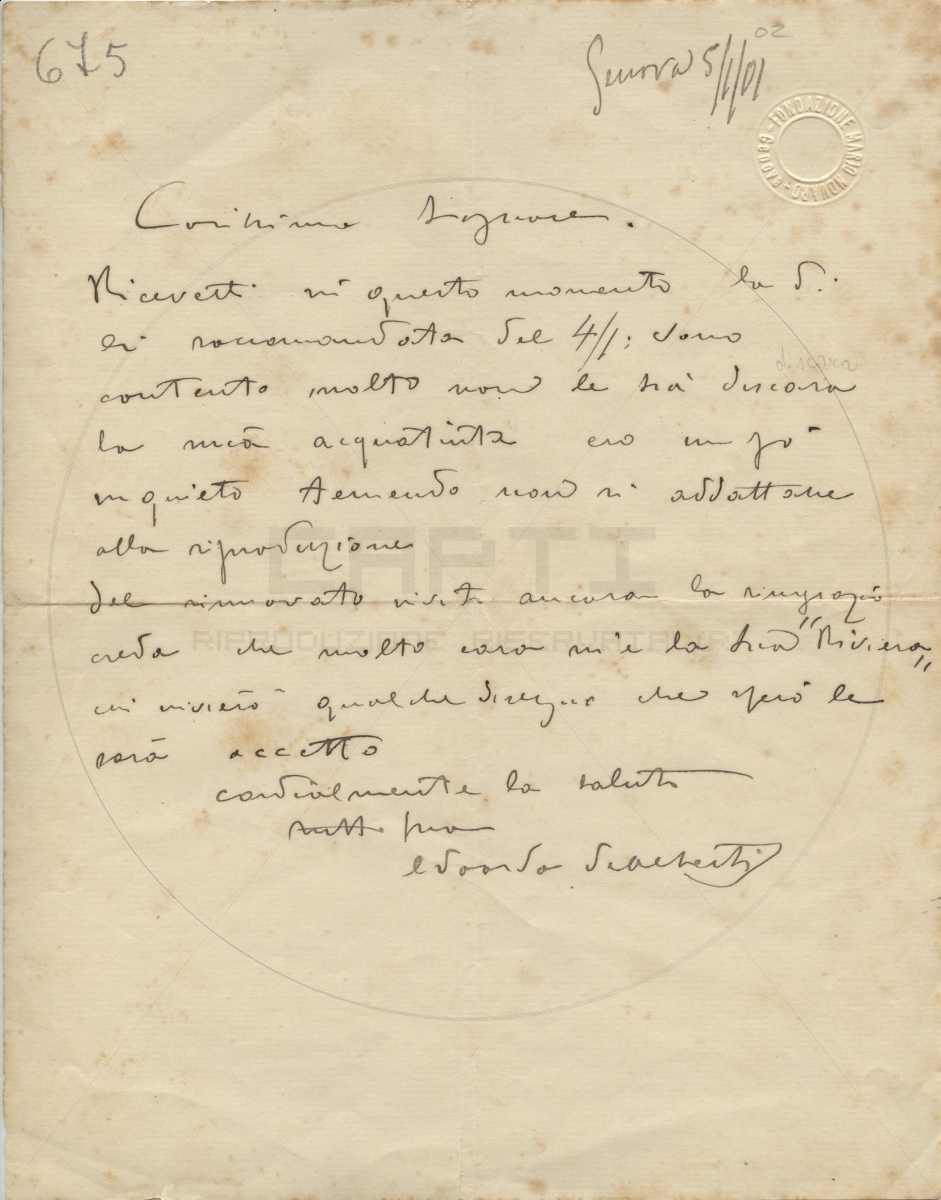 675
Genova 5/1/01
02
FONDAZIONE MARIO NOVARO - GENOVA
Carissimo Signore.
Ricevetti in questo momento la di
lei raccomandata del 4/1; sono
discara
contento molto non le sia discara
la mia acquatinta ero un po'
inquieto temendo non si addattasse
alla riproduzione
del rinnovato invito ancora la ringrazio
creda che molto cara mi è la sua "Riviera"
ci invierò qualche disegno che spero le
sarà accetto
cordialmente la saluto
tutto suo
Edoardo DeAlberti
CAPTI
RIPRODUZIONE RISERVATA